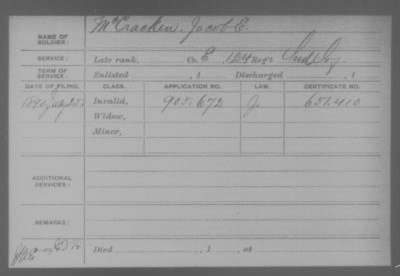 NAME OF SOLDIER: McCracken, Jacob C.
SERVICE: Late rank, Co. E, 124 Reg't Ind Inf
TERM OF SERVICE: Enlisted , 1 Discharged , 1
DATE OF FILING. CLASS. APPLICATION NO. LAW. CERTIFICATE NO.
1890 July 25 Invalid, 905.672 J. 651.410
Widow,
Minor,
ADDITIONAL SERVICES:
REMARKS:
Died , 1 , at